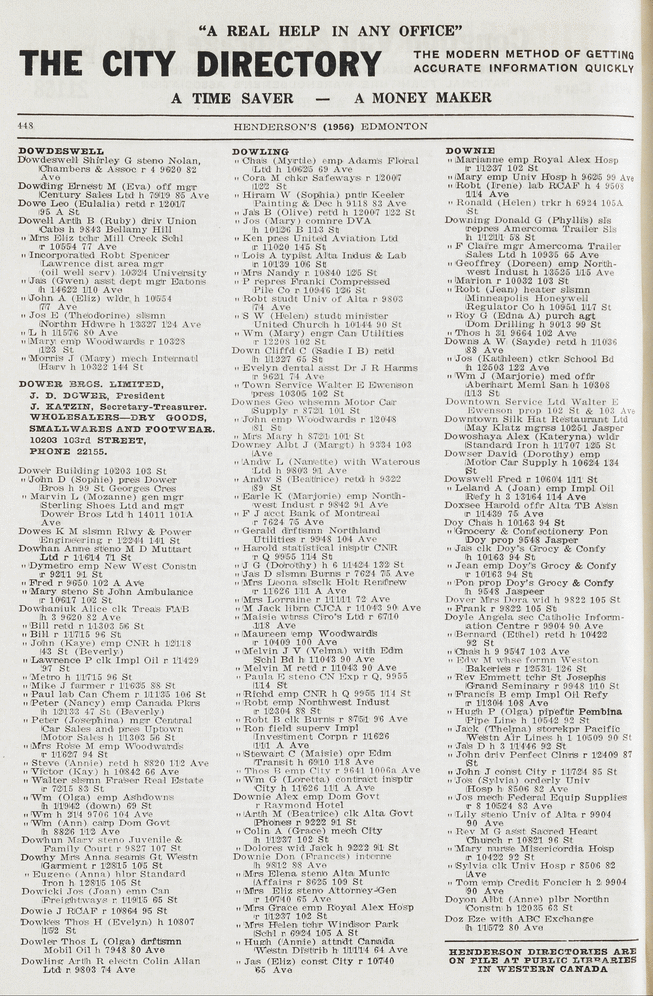 "A REAL HELP IN ANY OFFICE"
THE CITY DIRECTORY
THE MODERN METHOD OF GETTING
ACCURATE INFORMATION QUICKLY
A TIME SAVER — A MONEY MAKER
448
HENDERSON'S (1956) EDMONTON
DOWDESWELL
Dowdeswell Shirley G steno Nolan,
Chambers & Assoc r 4 9620 82
Ave
Dowding Ernest M (Eva) off mgr
Century Sales Ltd h 7919 85 Ave
Dowe Leo (Eulalia) retd r 12017
95 A St
Dowell Arth B (Ruby) driv Union
Cabs h 9843 Bellamy Hill
" Mrs Eliz tchr Mill Creek Schl
r 10554 77 Ave
" Incorporated Robt Spencer
Lawrence dist area mgr
(oil well serv) 10324 University
" Jas (Gwen) asst dept mgr Eatons
h 14622 110 Ave
" John A (Eliz) wldr h 10554
77 Ave
" Jos E (Theodorine) slsmn
Northn Hdwre h 13327 124 Ave
" L h 11576 80 Ave
" Mary emp Woodwards r 10328
123 St
" Morris J (Mary) mech Internatl
Harv h 10322 144 St
DOWER BROS. LIMITED,
J. D. DOWER, President
J. KATZIN, Secretary-Treasurer.
WHOLESALERS—DRY GOODS,
SMALLWARES AND FOOTWEAR.
10203 103rd STREET,
PHONE 22155.
Dower Building 10203 103 St
" John D (Sophie) pres Dower
Bros h 99 St Georges Cres
" Marvin L (Mozanne) gen mgr
Sterling Shoes Ltd and mgr
Dower Bros Ltd h 14011 101A
Ave
Dowes K M slsmn Rlwy & Power
Engineering r 12244 141 St
Dowhan Anne steno M D Muttart
Ltd r 11614 71 St
" Dymetro emp New West Constn
r 9211 91 St
" Fred r 9650 102 A Ave
" Mary steno St John Ambulance
r 10617 102 St
Dowhaniuk Alice clk Treas FAB
h 3 9620 82 Ave
" Bill retd r 11303 56 St
" Bill r 11715 96 St
" John (Kaye) emp CNR h 12118
43 St (Beverly)
" Lawrence P clk Impl Oil r 11429
97 St
" Metro h 11715 96 St
" Mike J farmer r 11635 88 St
" Paul lab Can Chem r 11135 106 St
" Peter (Nancy) emp Canada Pkrs
h 12133 47 St (Beverly)
" Peter (Josephina) mgr Central
Car Sales and pres Uptown
Motor Sales h 11303 56 St
" Mrs Rose M emp Woodwards
r 11627 94 St
" Steve (Annie) retd h 8820 112 Ave
" Victor (Kay) h 10842 66 Ave
" Walter slsmn Fraser Real Estate
r 7215 83 St
" Wm (Olga) emp Ashdowns
h 11942 (down) 69 St
" Wm h 214 9706 104 Ave
" Wm (Ann) carp Dom Govt
h 8826 112 Ave
Dowhun Mary steno Juvenile &
Family Court r 9827 107 St
Dowhy Mrs Anna seams Gt Westn
Garment r 12815 105 St
" Eugene (Anna) hlpr Standard
Iron h 12815 105 St
Dowicki Jos (Joan) emp Can
Freightways r 11915 65 St
Dowie J RCAF r 10864 95 St
Dowkes Thos H (Evelyn) h 10807
152 St
Dowler Thos L (Olga) drftsmn
Mobil Oil h 7948 80 Ave
Dowling Arth R electn Colin Allan
Ltd r 9803 74 Ave
DOWLING
" Chas (Myrtle) emp Adams Floral
Ltd h 10625 69 Ave
" Cora M chkr Safeways r 12007
122 St
" Hiram W (Sophia) pntr Keeler
Painting & Dec h 9118 83 Ave
" Jas B (Olive) retd h 12007 122 St
" Jos (Mary) comnre DVA
h 10126 B 113 St
" Ken pres United Aviation Ltd
r 11020 145 St
" Lois A typist Alta Indus & Lab
r 10139 106 St
" Mrs Nandy r 10840 125 St
" P repres Franki Compressed
Pile Co r 10946 126 St
" Robt studt Univ of Alta r 9803
74 Ave
" S W (Helen) studt minister
United Church h 10144 90 St
" Wm (Mary) engr Can Utilities
r 12208 102 St
Down Cliffd C (Sadie I B) retd
h 11227 65 St
" Evelyn dental asst Dr J R Harms
r 9621 74 Ave
" Town Service Walter E Ewenson
pres 10305 102 St
Downes Geo whsemn Motor Car
Supply r 8721 101 St
" John emp Woodwards r 12048
81 St
" Mrs Mary h 8721 101 St
Downey Albt J (Margt) h 9334 103
Ave
" Andw L (Nanette) with Waterous
Ltd h 9803 91 Ave
" Andw S (Beatrice) retd h 9322
89 St
" Earle K (Marjorie) emp North-
west Indust r 9842 91 Ave
" F J acct Bank of Montreal
r 7624 75 Ave
" Gerald drftsmn Northland
Utilities r 9948 104 Ave
" Harold statistical insptr CNR
r Q 9955 114 St
" J G (Dorothy) h 6 11424 132 St
" Jas D slsmn Burns r 7624 75 Ave
" Mrs Leona slsclk Holt Renfrew
r 11626 111 A Ave
" Mrs Lorraine r 11111 72 Ave
" M Jack librn CJCA r 11043 90 Ave
" Maisie wtrss Ciro's Ltd r 6710
118 Ave
" Maureen emp Woodwards
r 10409 100 Ave
" Melvin J V (Velma) with Edm
Schl Bd h 11043 90 Ave
" Melvin M retd r 11043 90 Ave
" Paula E steno CN Exp r Q, 9955
114 St
" Richd emp CNR h Q 9955 114 St
" Robt emp Northwest Indust
r 12304 88 St
" Robt B clk Burns r 8751 96 Ave
" Ron field superv Impl
Investment Corpn r 11626
111 A Ave
" Stewart C (Maisie) opr Edm
Transit h 6910 118 Ave
" Thos B emp City r 9641 106a Ave
" Wm G (Loretta) contract insptr
City h 11626 111 A Ave
Downie Alex emp Dom Govt
r Raymond Hotel
" Arth M (Beatrice) clk Alta Govt
Phones r 9222 91 St
" Colin A (Grace) mech City
h 11237 102 St
" Dolores wid Jack h 9222 91 St
Downie Don (Frances) interne
h 9812 88 Ave
" Mrs Elena steno Alta Munic
Affairs r 8625 109 St
" Mrs Eliz steno Attorney-Gen
r 10740 65 Ave
" Mrs Grace emp Royal Alex Hosp
r 11237 102 St
" Mrs Helen tchr Windsor Park
Schl r 6924 105 A St
" Hugh (Annie) attndt Canada
Westn Distrib h 11114 64 Ave
" Jas (Eliz) const City r 10740
65 Ave
DOWNIE
" Marianne emp Royal Alex Hosp
r 11237 102 St
" Mary emp Univ Hosp h 9625 99 Ave
" Robt (Irene) lab RCAF h 4 9508
114 Ave
" Ronald (Helen) trkr h 6924 105A
St
Downing Donald G (Phyllis) sls
repres Amercoma Trailer Sls
h 11211 58 St
" F Claire mgr Amercoma Trailer
Sales Ltd h 10935 65 Ave
" Geoffrey (Doreen) emp North-
west Indust h 13525 115 Ave
" Marion r 10032 103 St
" Robt (Jean) heater slsmn
Minneapolis Honeywell
Regulator Co h 10951 117 St
" Roy G (Edna A) purch agt
Dom Drilling h 9013 99 St
" Thos h 31 9664 102 Ave
Downs A W (Sayde) retd h 11036
88 Ave
" Jos (Kathleen) ctkr School Bd
h 12503 122 Ave
" Wm J (Marjorie) med offr
Aberhart Meml San h 10308
113 St
Downtown Service Ltd Walter E
Ewenson prop 102 St & 103 Ave
Downtown Silk Hat Restaurant Ltd
May Klatz mgrss 10251 Jasper
Dowoshaya Alex (Kateryna) wldr
Standard Iron h 11707 125 St
Dowser David (Dorothy) emp
Motor Car Supply h 10624 134
St
Dowswell Fred r 10604 111 St
" Leland A (Joan) emp Impl Oil
Refy h 3 13164 114 Ave
Doxsee Harold offr Alta TB Assn
r 11439 75 Ave
Doy Chas h 10163 94 St
" Grocery & Confectionery Pon
Doy prop 9548 Jasper
" Jas clk Doy's Grocy & Confy
h 10163 94 St
" Jean emp Doy's Grocy & Confy
r 10163 94 St
" Pon prop Doy's Grocy & Confy
h 9548 Jaspeer
Dover Mrs Dora wid h 9822 105 St
" Frank r 9822 105 St
Doyle Angela sec Catholic Inform-
ation Centre r 9904 90 Ave
" Bernard (Ethel) retd h 10422
92 St
" Chas h 9 9547 103 Ave
" Edw M whse formn Weston
Bakeries r 12531 126 St
" Rev Emmett tchr St Josephs
Grand Seminary r 9948 110 St
" Francis B emp Impl Oil Refy
r 11304 108 Ave
" Hugh P (Olga) pipeftr Pembina
Pipe Line h 10542 92 St
" Jack (Thelma) storekpr Pacific
Westn Air Lines h 1 10509 90 St
" Jas D h 3 11446 92 St
" John driv Perfect Clnrs r 12409 87
St
" John J const City r 11724 85 St
" Jos (Sylvia) orderly Univ
Hosp h 8506 82 Ave
" Jos mech Federal Equip Supplies
r 8 10524 83 Ave
" Lily steno Univ of Alta r 9904
90 Ave
" Rev M G asst Sacred Heart
Church r 10821 96 St
" Mary nurse Misericordia Hosp
r 10422 92 St
" Sylvia clk Univ Hosp r 8506 82
Ave
" Tom emp Credit Foncier h 2 9904
90 Ave
Doyon Albt (Anne) plbr Northn
Constn h 12035 63 St
Doz Eze with ABC Exchange
h 11572 80 Ave
HENDERSON DIRECTORIES ARE
ON FILE AT PUBLIC LIBRARIES
IN WESTERN CANADA